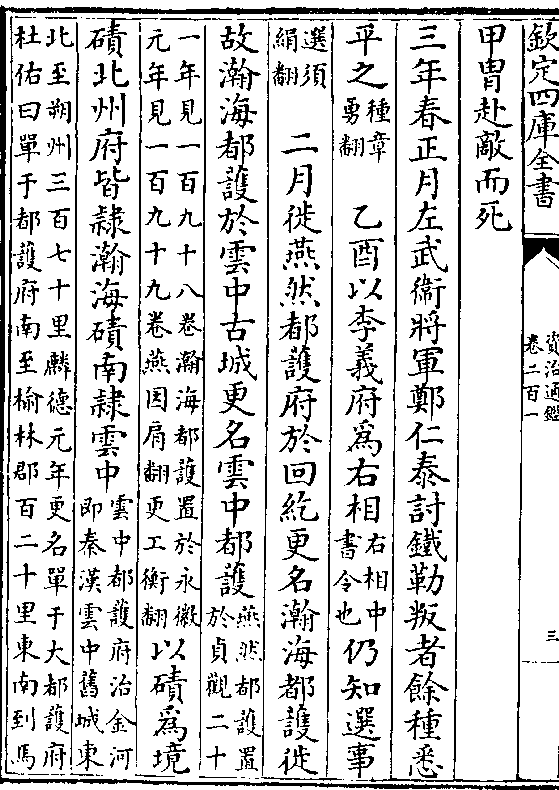 欽定四庫全書
資治通鑑
卷二百一
三
甲冑赴敵而死
三年春正月左武衛將軍鄭仁泰討鐵勒叛者餘種悉
平之種章勇翻乙酉以李義府爲右相右相中書令也仍知選事
選須絹翻二月徙燕然都護府於回紇更名瀚海都護徙
故瀚海都護於雲中古城更名雲中都護燕然都護置於貞觀二十
一年見一百九十八卷瀚海都護置於永徽元年見一百九十九卷燕因肩翻更工衡翻以磧爲境
磧北州府皆隷瀚海磧南隷雲中雲中都護府治金河即秦漢雲中舊城東
北至朔州三百七十里麟德元年更名單于大都護府杜佑曰單于都護府南至榆林郡百二十里東南到馬